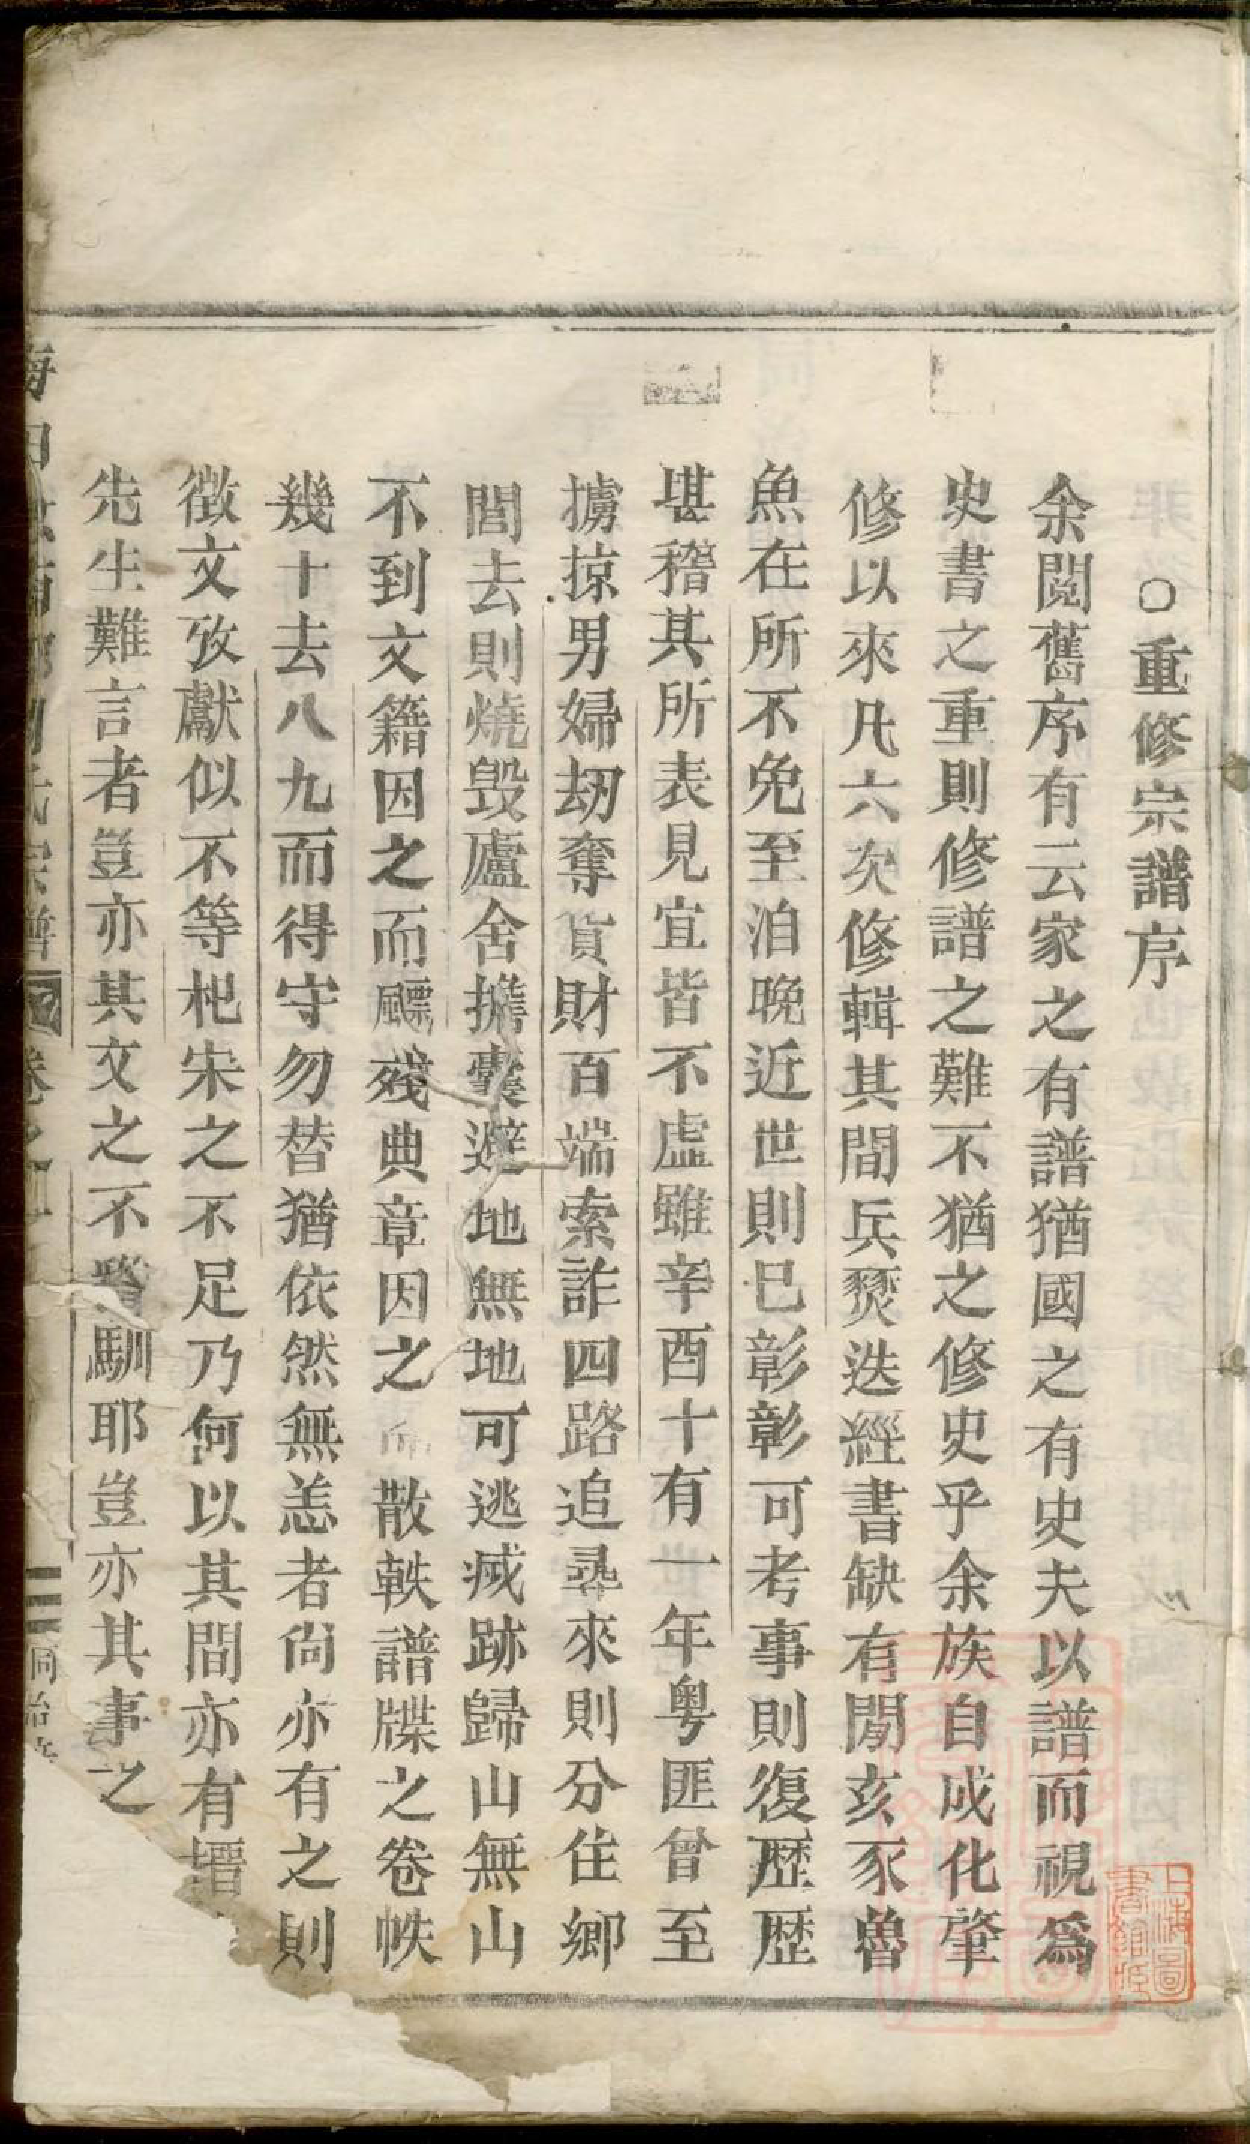 ○重修宗譜序
余閲舊序有云家之有譜猶國之有史夫以譜而視爲
史書之重則修譜之難不猶之修史乎余族自成化肇
修以來凡六次修輯其間兵燹迭經書缺有閒亥豕魯
魚在所不免至洎晚近世則巳彰彰可考事則復歷歷
堪稽其所表見宜皆不虛雖辛酉十有一年粤匪曾至
擄掠男婦刧奪貨財百端索詐四路追尋來則分住鄉
閭去則燒毁廬舍擔囊避地無地可逃滅跡歸山無山
不到文籍因之而飄殘典章因之而散軼譜牒之卷帙
幾十去八九而得守勿替猶依然無恙者尙亦有之則
徵文攷獻似不等杞宋之不足乃何以其間亦有
先生難言者豈亦其文之不馴耶豈亦其事之
氏宗譜 卷之 同治
上海圖書館藏